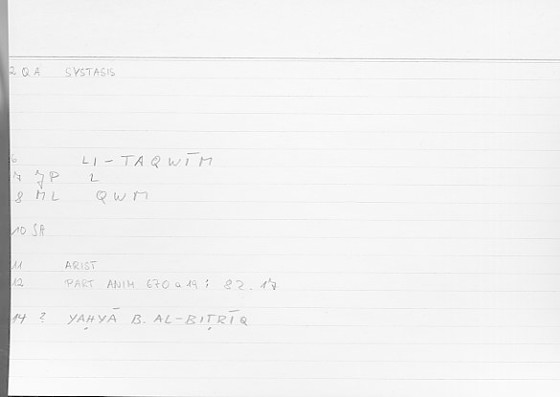 2 QA SYSTASIS
6 LI-TAQWĪM
7 JP L
8 ML QWM
10 SA
11 ARIST
12 PART ANIM 670a19; 82.17
14 ? YAḤYĀ B. AL-BIṬRĪQ